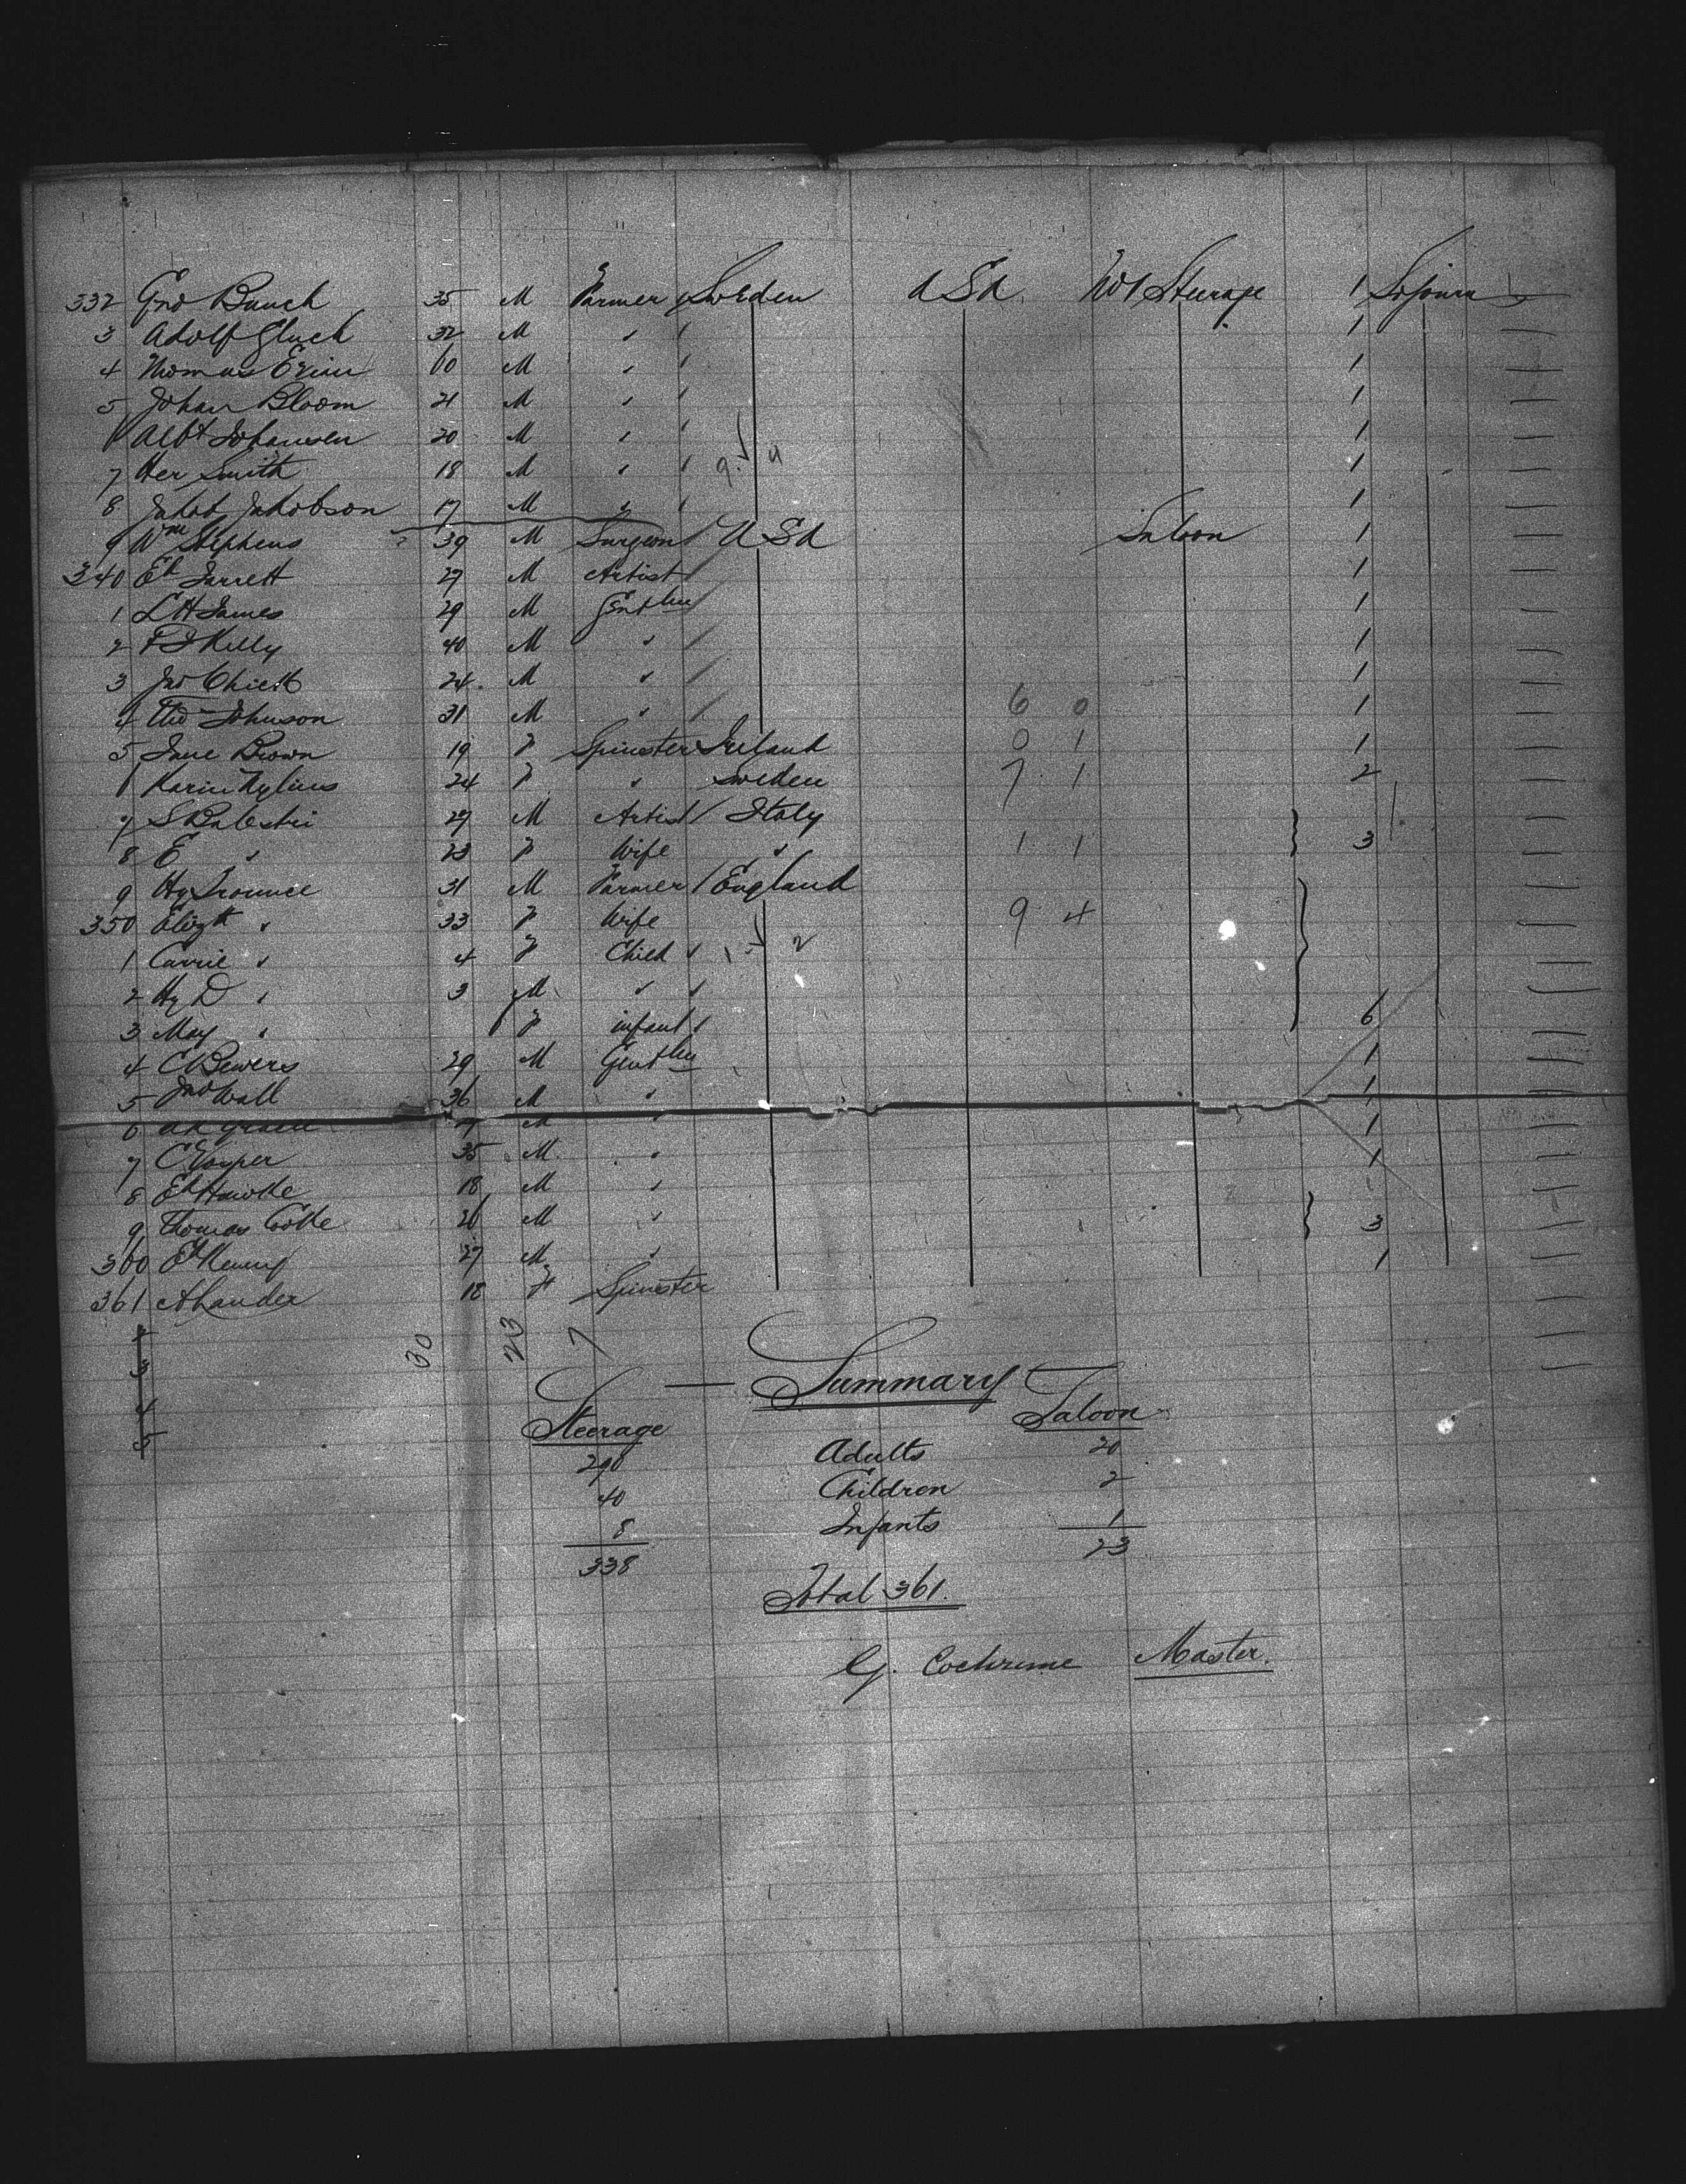 332 Gno Bauch 35 M Farmer Sweden U S A W/Steerage 1 Sojourn
3 Adolf Gluck 32 M " 1
4 Thomas 60 M " 1
5 Johan Bloom 21 M " 1
6 Albt Johansen 20 M " 1
7 Her Smith 18 M " 1
8 Jakob Jakobson 17 M " 1
9 Wm Stephens 39 M Surgeon U S A Saloon 1
340 Ed Jarrett 27 M Artist 1
1 L H James 29 M Gentln 1
2 F J Kelly 40 M " 1
3 Jno 24 M " 1
4 Theo Johnson 31 M " 6 0 1
5 Jane Brown 19 F Spinster Ireland 0 1 1
6 Karin Nylius 24 F " Sweden 7 1 2
7 S Balestri 29 M Artist Italy
8 E " 23 F Wife " 1 1 3
9 Hy Trounce 31 M Farmer England
350 Elizth " 33 F Wife 9 4
1 Carrie " 4 F Child
2 Hy D " 3 M "
3 May " F infant 6
4 C Bewers 29 M Gentln 1
5 Jno Wall 36 M " 1
6 M " 1
7 C Vosper 35 M " 1
8 Ed Hawke 18 M "
9 Thomas Cooke 26 M " 3
360 Ed Kenny 27 M " 1
361 A Lander 18 F Spinster
30 23 7
3
4
5
Summary
Steerage Saloon
290 Adults 20
40 Children 2
8 Infants 1
338 23
Total 361.
G. Cochrane Master.